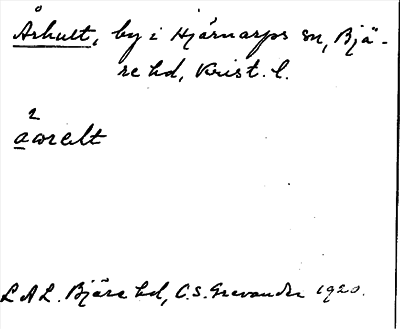 Århult, by i Hjärnarps sn, Bjä-
re hd, Krist. l.
2
åworlt
L A L. Bjäre hd, C.S. Grevander 1920.